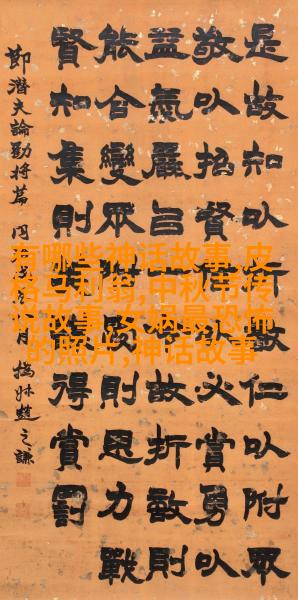 是故知以仁以附眾
敬以招賢必賞勇以
益氣嚴吕故折敵則
能合變眾則思力戰
賢知集則得賞罰
節潛夫論勸將篇 同治月 撝叔趙之謙
有哪些神话故事,皮
格马利翁,中秋节传
说故事,女娲最恐怖
的照片,神话故事